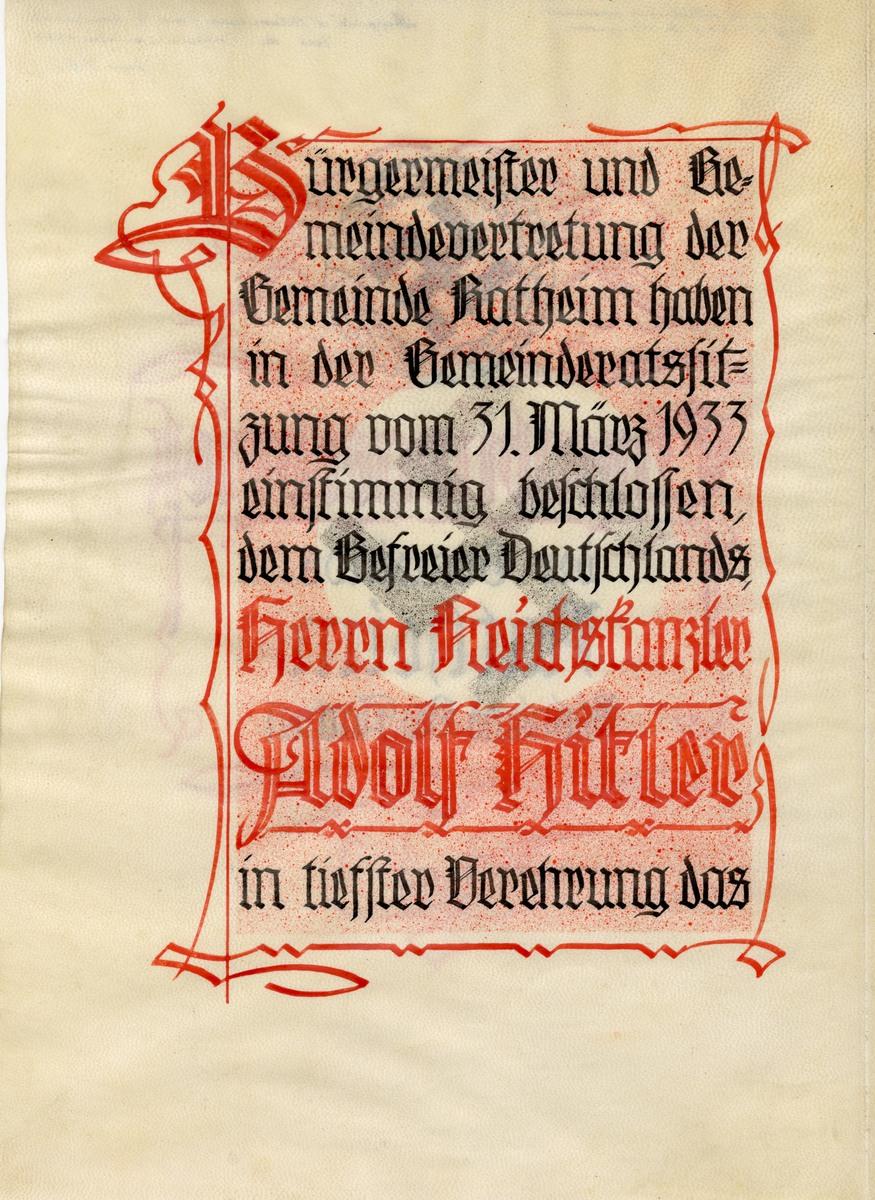 Bürgermeister und Ge-
meindevertretung der
Gemeinde Ratheim haben
in der Gemeinderatssit-
zung vom 31. März 1933
einstimmig beschlossen,
dem Befreier Deutschlands,
Herrn Reichskanzler
Adolf Hitler
in tiefster Verehrung das